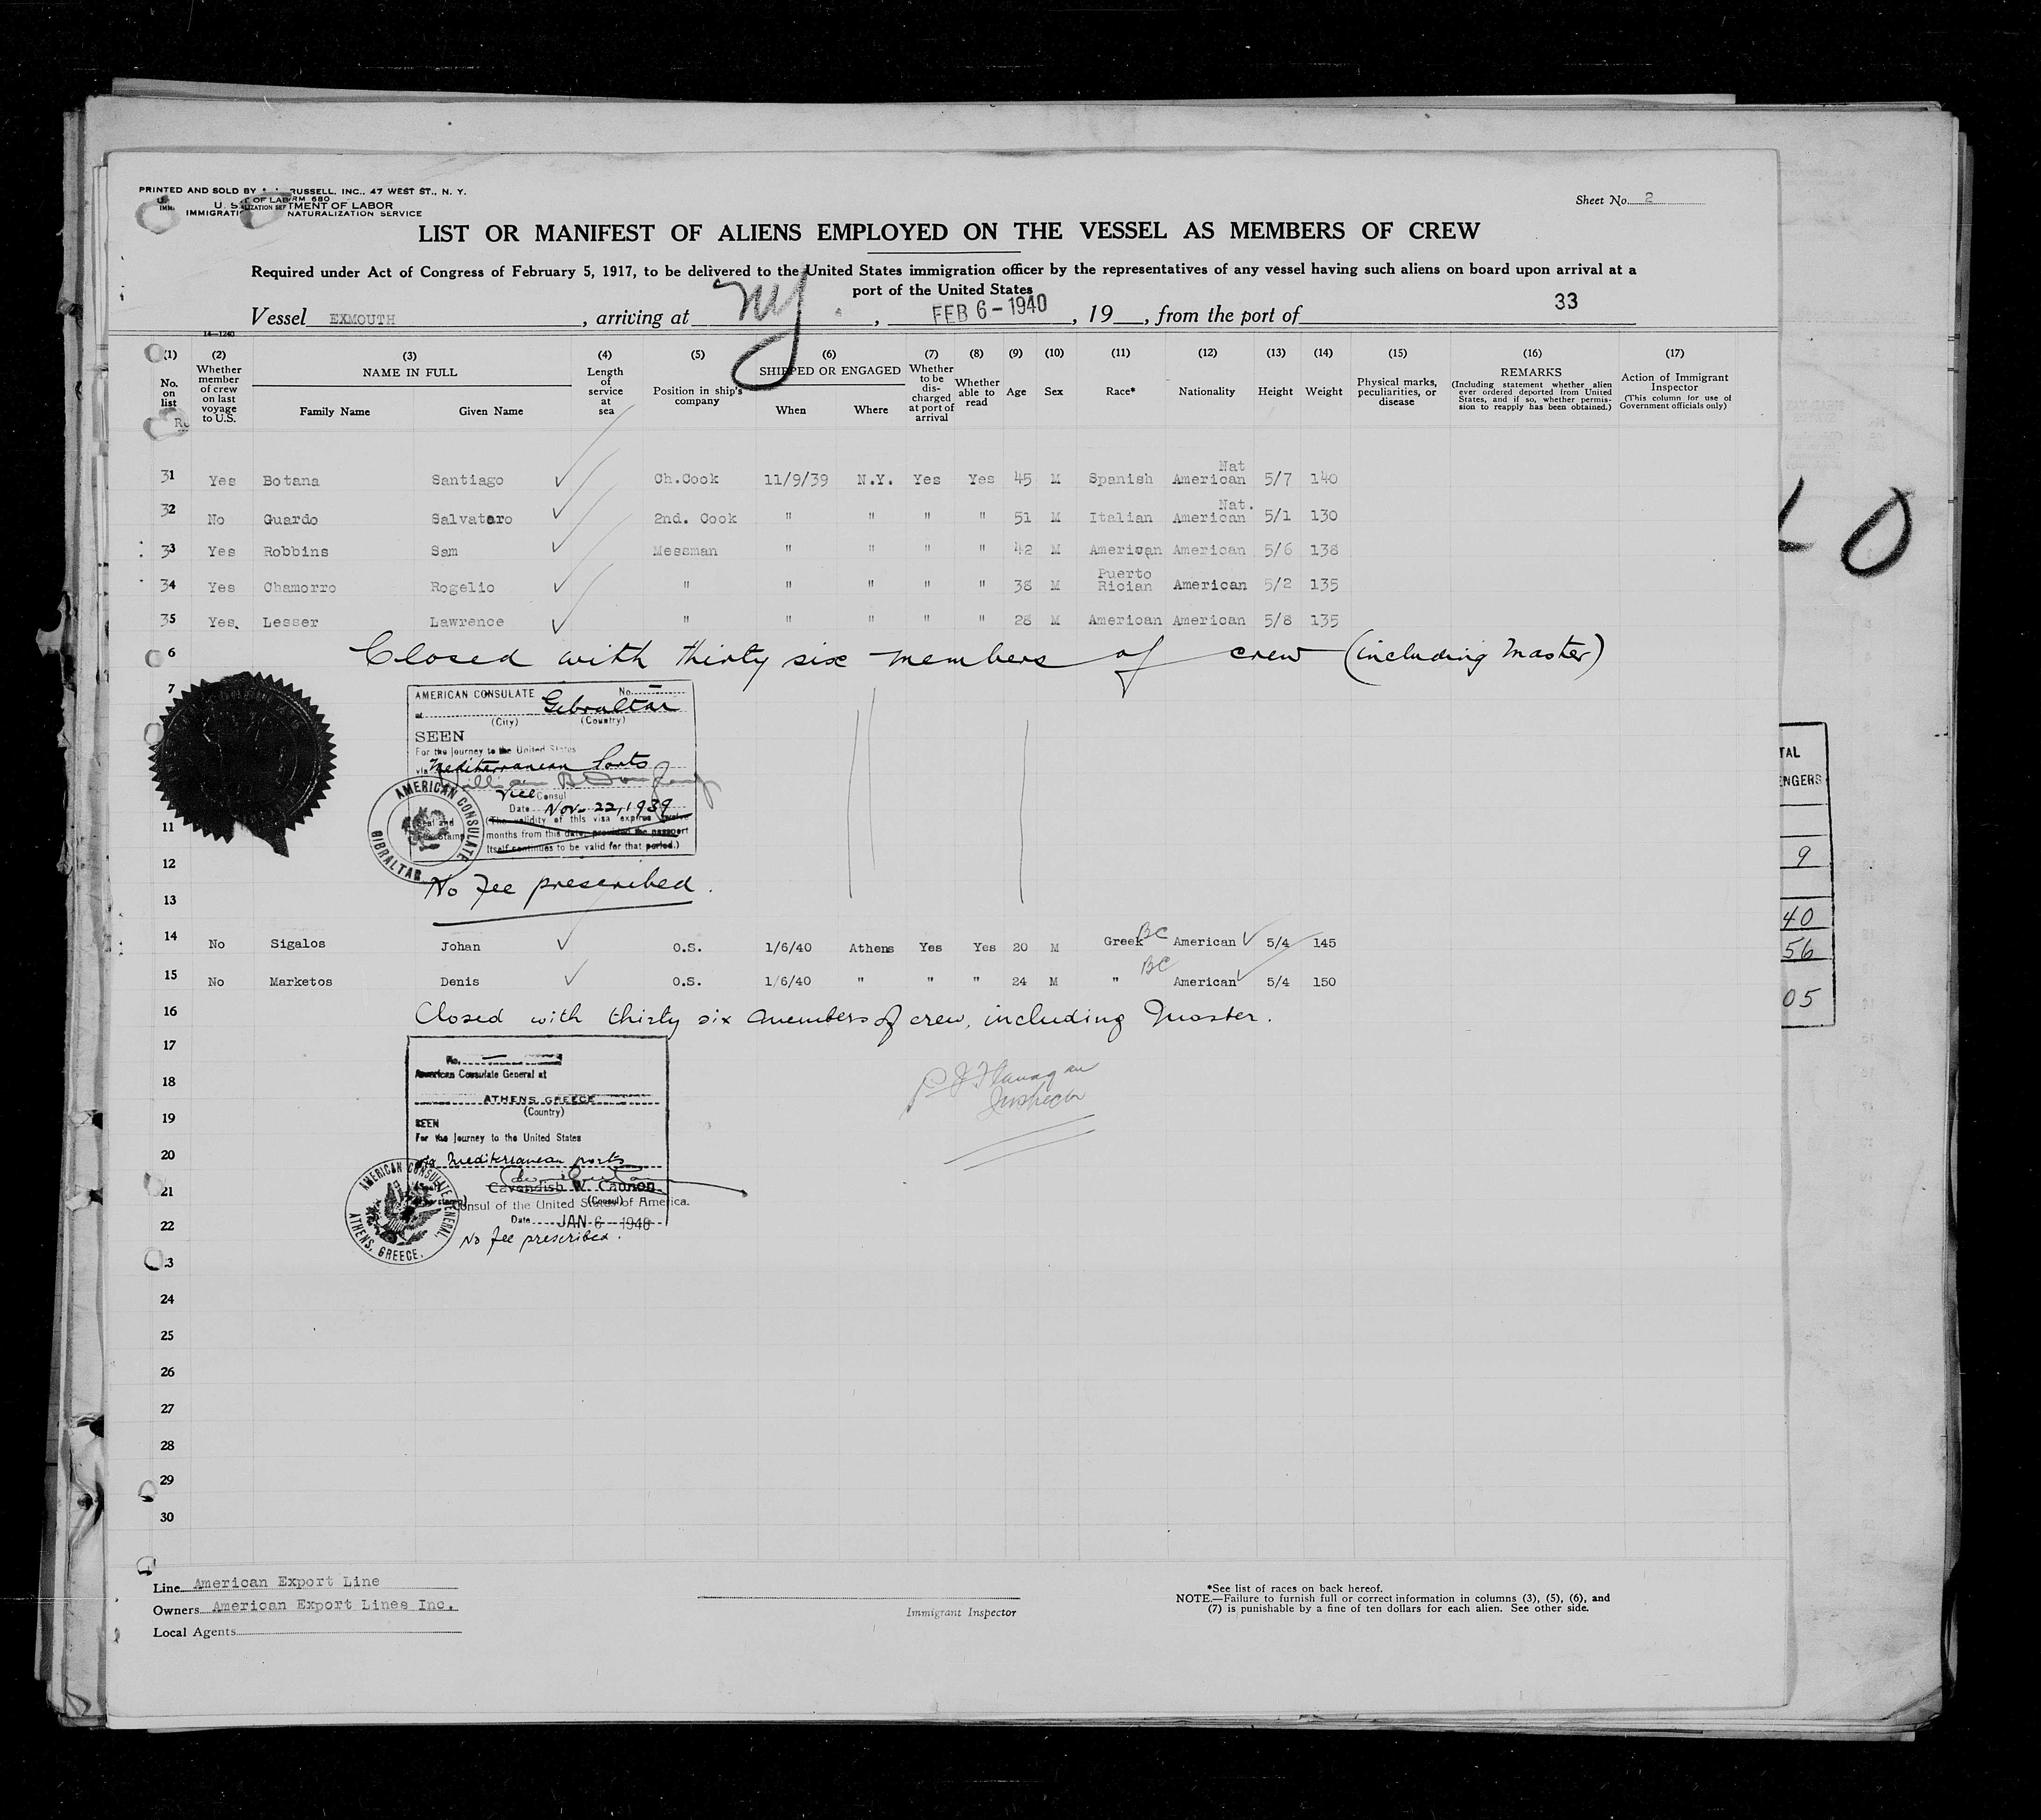 PRINTED AND SOLD BY RUSSELL, INC., 47 WEST ST., N. Y.
U. S. TMENT OF LABOR
IMMIGRATI NATURALIZATION SERVICE
Sheet No. 2
LIST OR MANIFEST OF ALIENS EMPLOYED ON THE VESSEL AS MEMBERS OF CREW
Required under Act of Congress of February 5, 1917, to be delivered to the United States immigration officer by the representatives of any vessel having such aliens on board upon arrival at a
port of the United States
33
Vessel EXMOUTH, arriving at NY, FEB 6 - 1940, 19, from the port of
14—1240
(1) (2) (3) (4) (5) (6) (7) (8) (9) (10) (11) (12) (13) (14) (15) (16) (17)
No. on list
Whether member of crew on last voyage to U.S.
NAME IN FULL
Family Name Given Name
Length of service at sea
Position in ship's company
SHIPPED OR ENGAGED
When Where
Whether to be discharged at port of arrival
Whether able to read
Age
Sex
Race*
Nationality
Height
Weight
Physical marks, peculiarities, or disease
REMARKS
(Including statement whether alien ever ordered deported from United States, and if so, whether permission to reapply has been obtained.)
Action of Immigrant Inspector
(This column for use of Government officials only)
31 Yes Botana Santiago Ch.Cook 11/9/39 N.Y. Yes Yes 45 M Spanish Nat American 5/7 140
32 No Guardo Salvataro 2nd. Cook " " " " 51 M Italian Nat. American 5/1 130
33 Yes Robbins Sam Messman " " " " 42 M American American 5/6 138
34 Yes Chamorro Rogelio " " " " " 38 M Puerto Rician American 5/2 135
35 Yes. Lesser Lawrence " " " " " 28 M American American 5/8 135
6 Closed with thirty six members of crew (including Master)
7
AMERICAN CONSULATE No.
at Gibraltar
(City) (Country)
SEEN
For the journey to the United States
via Mediterranean Ports
Vice Consul
Date Nov. 22, 1939
(The validity of this visa expires twelve
months from this date, provided the passport
itself continues to be valid for that period.)
AMERICAN CONSULATE
GIBRALTAR
No fee prescribed.
11
12
13
14 No Sigalos Johan O.S. 1/6/40 Athens Yes Yes 20 M Greek BC American 5/4 145
15 No Marketos Denis O.S. 1/6/40 " " " 24 M " BC American 5/4 150
16 Closed with thirty six members of crew, including Master.
17
No.
American Consulate General at
18
ATHENS GREECE
(Country)
19
SEEN
For the Journey to the United States
Flanagan
Inspector
20
via Mediterranean ports
21
Cavendish W. Cannon
(Consul)
Consul of the United States of America.
22
Date JAN 6 1940
No fee prescribed.
AMERICAN CONSULATE GENERAL,
ATHENS, GREECE.
3
24
25
26
27
28
29
30
Line American Export Line
Owners American Export Lines Inc.
Local Agents
Immigrant Inspector
*See list of races on back hereof.
NOTE.—Failure to furnish full or correct information in columns (3), (5), (6), and
(7) is punishable by a fine of ten dollars for each alien. See other side.
TAL
ENGERS
9
40
56
05